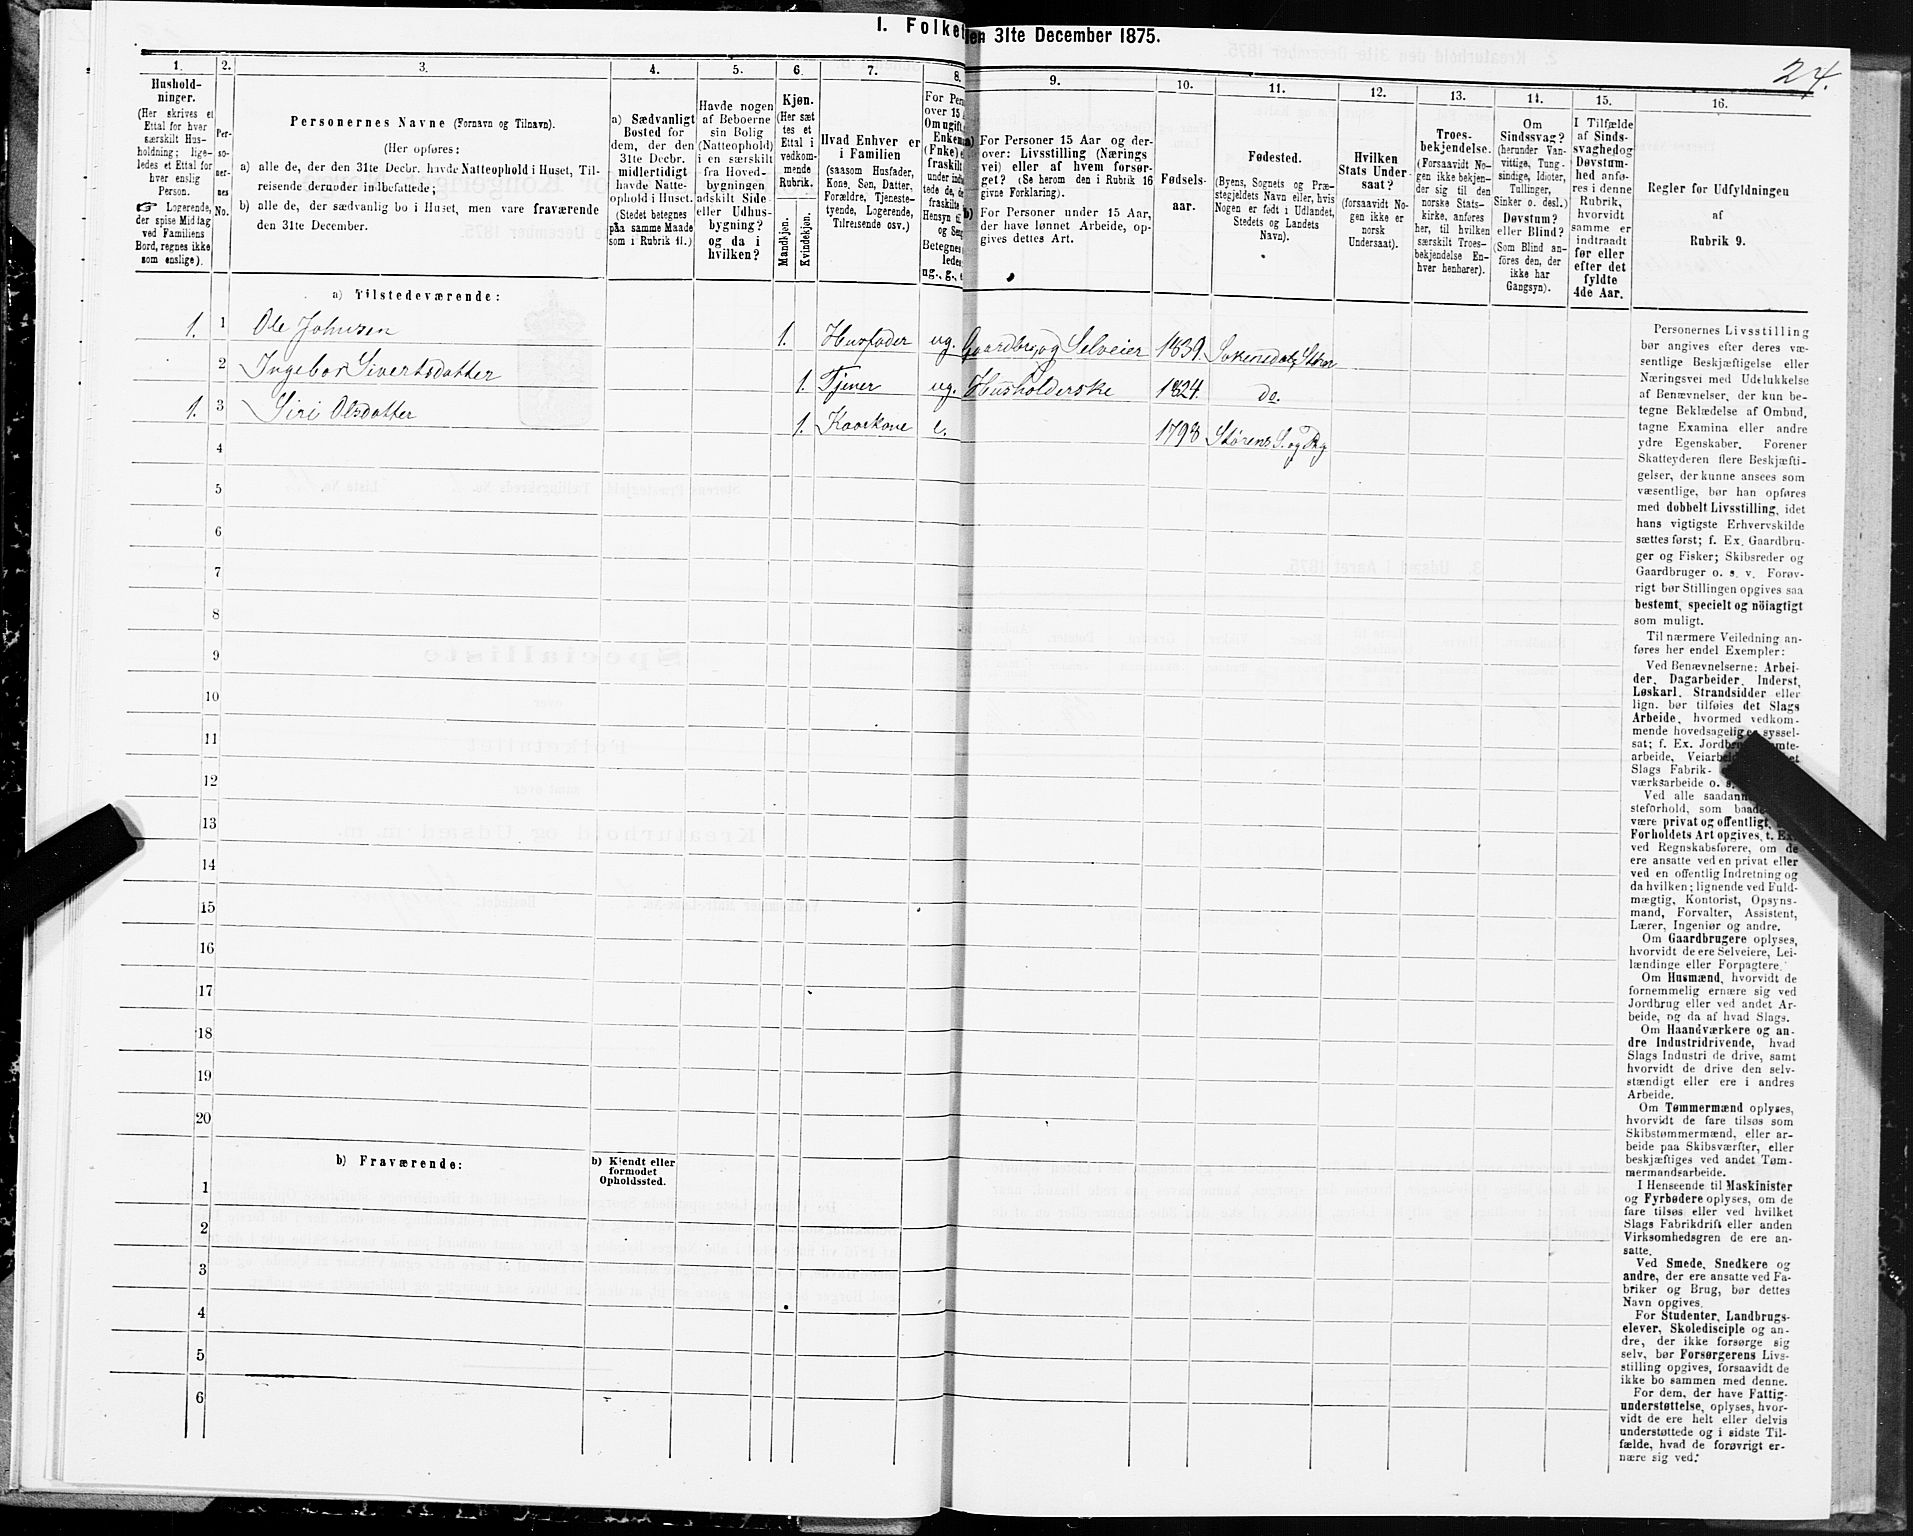 I. Folket
en 31te December 1875.
24.
1.
2.
3.
4.
5.
6.
7.
8.
9.
10.
11.
12.
13.
14.
15.
16.
Hushold-
ninger.
(Her skrives et
Ettal for hver
særskilt Hus-
holdning; lige-
ledes et Ettal for
hver enslig
Person.
☞ Logerende,
der spise Middag
ved Familiens
Bord, regnes ikke
som enslige).
Per-
so-
ner-
nes
No.
Personernes Navne (Fornavn og Tilnavn).
(Her opføres:
a) alle de, der den 31te Decbr. havde Natteophold i Huset, Til-
reisende derunder indbefattede;
b) alle de, der sædvanlig bo i Huset, men vare fraværende
den 31te December.
a) Sædvanligt
Bosted for
dem, der den
31te Decbr.
midlertidigt
havde Natte-
ophold i Huset.
(Stedet betegnes
paa samme Maade
som i Rubrik 11.)
Havde nogen
af Beboerne
sin Bolig
(Natteophold)
i en særskilt
fra Hoved-
bygningen
adskilt Side-
eller Udhus-
bygning?
og da i
hvilken?
Kjøn.
(Her sæt-
tes et
Ettal i
vedkom-
mende
Rubrik.
Mandkjøn.
Kvindekjøn.
Hvad Enhver er
i Familien
(saasom Husfader,
Kone, Søn, Datter,
Forældre, Tjeneste-
tyende, Logerende,
Tilreisende osv.)
For Pers
over 15
Om ugift,
Enkem
(Fnke) e
fraskilt
under ind
tede de, de
fraskilte
Hensyn ti
og Sen
Betegnes
ledes
ug., g., e
a) For Personer 15 Aar og der-
over: Livsstilling (Nærings-
vei) eller af hvem forsør-
get? (Se herom den i Rubrik 16
givne Forklaring).
b) For Personer under 15 Aar,
der have lønnet Arbeide, op-
gives dettes Art.
Fødsels-
aar.
Fødested.
(Byens, Sognets og Præ-
stegjeldets Navn eller, hvis
Nogen er født i Udlandet,
Stedets og Landets
Navn).
Hvilken
Stats Under-
saat?
(forsaavidt No-
gen ikke er
norsk
Undersaat).
Troes-
bekjendelse.
(Forsaavidt No-
gen ikke bekjen-
der sig til den
norske Stats-
kirke, anføres
her, til hvilken
særskilt Troes-
bekjendelse En-
hver henhører).
Om
Sindssvag?
(herunder Van-
vittige, Tung-
sindige, Idioter,
Tullinger,
Sinker o. desl.)
Døvstum?
eller Blind?
(Som Blind an-
føres den, der
ikke har
Gangsyn).
I Tilfælde
af Sinds-
svaghed og
Døvstum-
hed anfø-
res i denne
Rubrik,
hvorvidt
samme er
indtraadt
før eller
efter det
fyldte
4de Aar.
Regler for Udfyldningen
af
Rubrik 9.
a) Tilstedeværende:
1. 1 Ole Johnsen 1. Husfader ug. Gaardbr. og Selveier 1839. Soknedal, Stør
2 Ingebor Sivertsdatter 1. Tjener ug. Husholderske 1824. do.
1. 3 Siri Olsdatter 1. Kaarkone e. 1798 Størens S. og Pg
4
5
6
7
8
9
10
11
12
13
14
15
16
17
18
19
20
b) Fraværende:
b) Kjendt eller
formodet
Opholdssted.
1
2
3
4
5
6
Personernes Livsstilling
bør angives efter deres væ-
sentlige Beskjæftigelse eller
Næringsvei med Udelukkelse
af Benævnelser, der kun be-
tegne Beklædelse af Ombud,
tagne Examina eller andre
ydre Egenskaber. Forener
Skatteyderen flere Beskjæfti-
gelser, der kunne ansees som
væsentlige, bør han opføres
med dobbelt Livsstilling, idet
hans vigtigste Erhvervskilde
sættes først; f. Ex. Gaardbru-
ger og Fisker; Skibsreder og
Gaardbruger o. s. v. Forøv-
rigt bør Stillingen opgives saa
bestemt, specielt og nöiagtigt
som muligt.
Til nærmere Veiledning an-
føres her endel Exempler:
Ved Benævnelserne: Arbei-
der, Dagarbeider, Inderst,
Løskarl, Strandsidder eller
lign. bør tilføies det Slags
Arbeide, hvormed vedkom-
mende hovedsagelig er syssel-
sat; f. Ex. Jordbr mte-
arbeide, Veiarbeide et
Slags Fabrik-
værksarbeide o. s.
Ved alle saadanne
steforhold, som baade
være privat og offentligt,
Forholdets Art opgives, t. Ex.
ved Regnskabsførere, om de
ere ansatte ved en privat eller
ved en offentlig Indretning og
da hvilken; lignende ved Fuld-
mægtig, Kontorist, Opsyns-
mand, Forvalter, Assistent,
Lærer, Ingeniør og andre.
Om Gaardbrugere oplyses,
hvorvidt de ere Selveiere, Lei-
lændinge eller Forpagtere.
Om Husmænd, hvorvidt de
fornemmelig ernære sig ved
Jordbrug eller ved andet Ar-
beide, og da af hvad Slags.
Om Haandværkere og an-
dre Industridrivende, hvad
Slags Industri de drive, samt
hvorvidt de drive den selv-
stændigt eller ere i andres
Arbeide.
Om Tømmermænd oplyses,
hvorvidt de fare tilsøs som
Skibstømmermænd, eller ar-
beide paa Skibsværfter, eller
beskjæftiges ved andet Tøm-
mermandsarbeide.
I Henseende til Maskinister
og Fyrbødere oplyses, om de
fare tilsøs eller ved hvilket
Slags Fabrikdrift eller anden
Virksomhedsgren de ere an-
satte.
Ved Smede, Snedkere og
andre, der ere ansatte ved Fa-
briker og Brug, bør dettes
Navn opgives.
For Studenter, Landbrugs-
elever, Skoledisciple og an-
dre, der ikke forsørge sig
selv, bør Forsørgerens Livs-
stilling opgives, forsaavidt de
ikke bo sammen med denne.
For dem, der have Fattig-
understøttelse, oplyses, hvor-
vidt de ere helt eller delvis
understøttede og i sidste Til-
fælde, hvad de forøvrigt er-
nære sig ved.